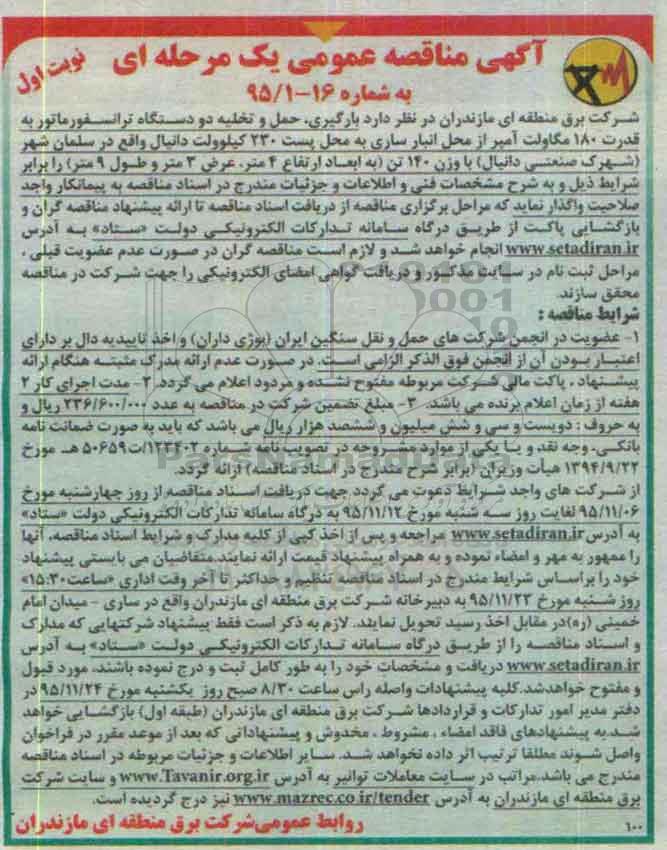 آگهی مناقصه عمومی یک مرحله ای
نوبت اول
به شماره ۱۶-۹۵/۱
شرکت برق منطقه ای مازندران در نظر دارد بارگیری، حمل و تخلیه دو دستگاه ترانسفورماتور به
قدرت ۱۸۰ مگاولت آمپر از محل انبار ساری به محل پست ۲۳۰ کیلوولت دانیال واقع در سلمان شهر
(شهرک صنعتی دانیال) با وزن ۱۴۰ تن (به ابعاد ارتفاع ۴ متر، عرض ۳ متر و طول ۹ متر) را برابر
شرایط ذیل و به شرح مشخصات فنی و اطلاعات و جزئیات مندرج در اسناد مناقصه به پیمانکار واجد
صلاحیت واگذار نماید که مراحل برگزاری مناقصه از دریافت اسناد مناقصه تا ارائه پیشنهاد مناقصه گران و
بازگشایی پاکت از طریق درگاه سامانه تدارکات الکترونیکی دولت «ستاد» به آدرس
www.setadiran.ir انجام خواهد شد و لازم است مناقصه گران در صورت عدم عضویت قبلی ،
مراحل ثبت نام در سایت مذکور و دریافت گواهی امضای الکترونیکی را جهت شرکت در مناقصه
محقق سازند.
شرایط مناقصه :
۱- عضویت در انجمن شرکت های حمل و نقل سنگین ایران (بوژی داران) و اخذ تاییدیه دال بر دارای
اعتبار بودن آن از انجمن فوق الذکر الزامی است. در صورت عدم ارائه مدرک مثبته هنگام ارائه
پیشنهاد ، پاکت مالی شرکت مربوطه مفتوح نشده و مردود اعلام می گردد. ۲- مدت اجرای کار ۲
هفته از زمان اعلام برنده می باشد. ۳- مبلغ تضمین شرکت در مناقصه به عدد ۲۳۶/۶۰۰/۰۰۰ ریال و
به حروف : دویست و سی و شش میلیون و ششصد هزار ریال می باشد که باید به صورت ضمانت نامه
بانکی، وجه نقد و یا یکی از موارد مشروحه در تصویب نامه شماره ۱۲۳۴۰۲/ت۵۰۶۵۹ هـ مورخ
۱۳۹۴/۹/۲۲ هیأت وزیران (برابر شرح مندرج در اسناد مناقصه) ارائه گردد.
از شرکت های واجد شرایط دعوت می گردد جهت دریافت اسناد مناقصه از روز چهارشنبه مورخ
۹۵/۱۱/۰۶ لغایت روز سه شنبه مورخ ۹۵/۱۱/۱۲ به درگاه سامانه تدارکات الکترونیکی دولت «ستاد»
به آدرس www.setadiran.ir مراجعه و پس از اخذ کپی از کلیه مدارک و شرایط اسناد مناقصه، آنها
را ممهور به مهر و امضاء نموده و به همراه پیشنهاد قیمت ارائه نمایند.متقاضیان می بایستی پیشنهاد
خود را براساس شرایط مندرج در اسناد مناقصه تنظیم و حداکثر تا آخر وقت اداری «ساعت ۱۵:۳۰»
روز شنبه مورخ ۹۵/۱۱/۲۳ به دبیرخانه شرکت برق منطقه ای مازندران واقع در ساری - میدان امام
خمینی (ره)در مقابل اخذ رسید تحویل نمایند. لازم به ذکر است فقط پیشنهاد شرکتهایی که مدارک
و اسناد مناقصه را از طریق درگاه سامانه تدارکات الکترونیکی دولت «ستاد» به آدرس
www.setadiran.ir دریافت و مشخصات خود را به طور کامل ثبت و درج نموده باشند، مورد قبول
و مفتوح خواهدشد.کلیه پیشنهادات واصله راس ساعت ۸/۳۰ صبح روز یکشنبه مورخ ۹۵/۱۱/۲۴ در
دفتر مدیر امور تدارکات و قراردادها شرکت برق منطقه ای مازندران (طبقه اول) بازگشایی خواهد
شد.به پیشنهادهای فاقد امضاء ، مشروط ، مخدوش و پیشنهاداتی که بعد از موعد مقرر در فراخوان
واصل شوند مطلقا ترتیب اثر داده نخواهد شد. سایر اطلاعات و جزئیات مربوطه در اسناد مناقصه
مندرج می باشد.مراتب در سایت معاملات توانیر به آدرس www.Tavanir.org.ir و سایت شرکت
برق منطقه ای مازندران به آدرس www.mazrec.co.ir/tender نیز درج گردیده است.
روابط عمومی شرکت برق منطقه ای مازندران
۱۰۰